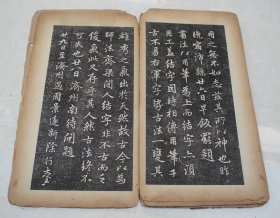 用之無不如志茲其所以神也昨
晚宿沛縣廿六日早飯罷題
書法以用筆為上而結字亦須
用工蓋結字因時相傳用筆千
古不易右軍字勢古法一變其
雄秀之氣出於天然故古今以為
師法齊梁間人結字非不古而乏
俊氣此又存乎其人然古法終不
可失也廿八日濟州南待閘題
廿九日至濟州遇周景遠新除行臺